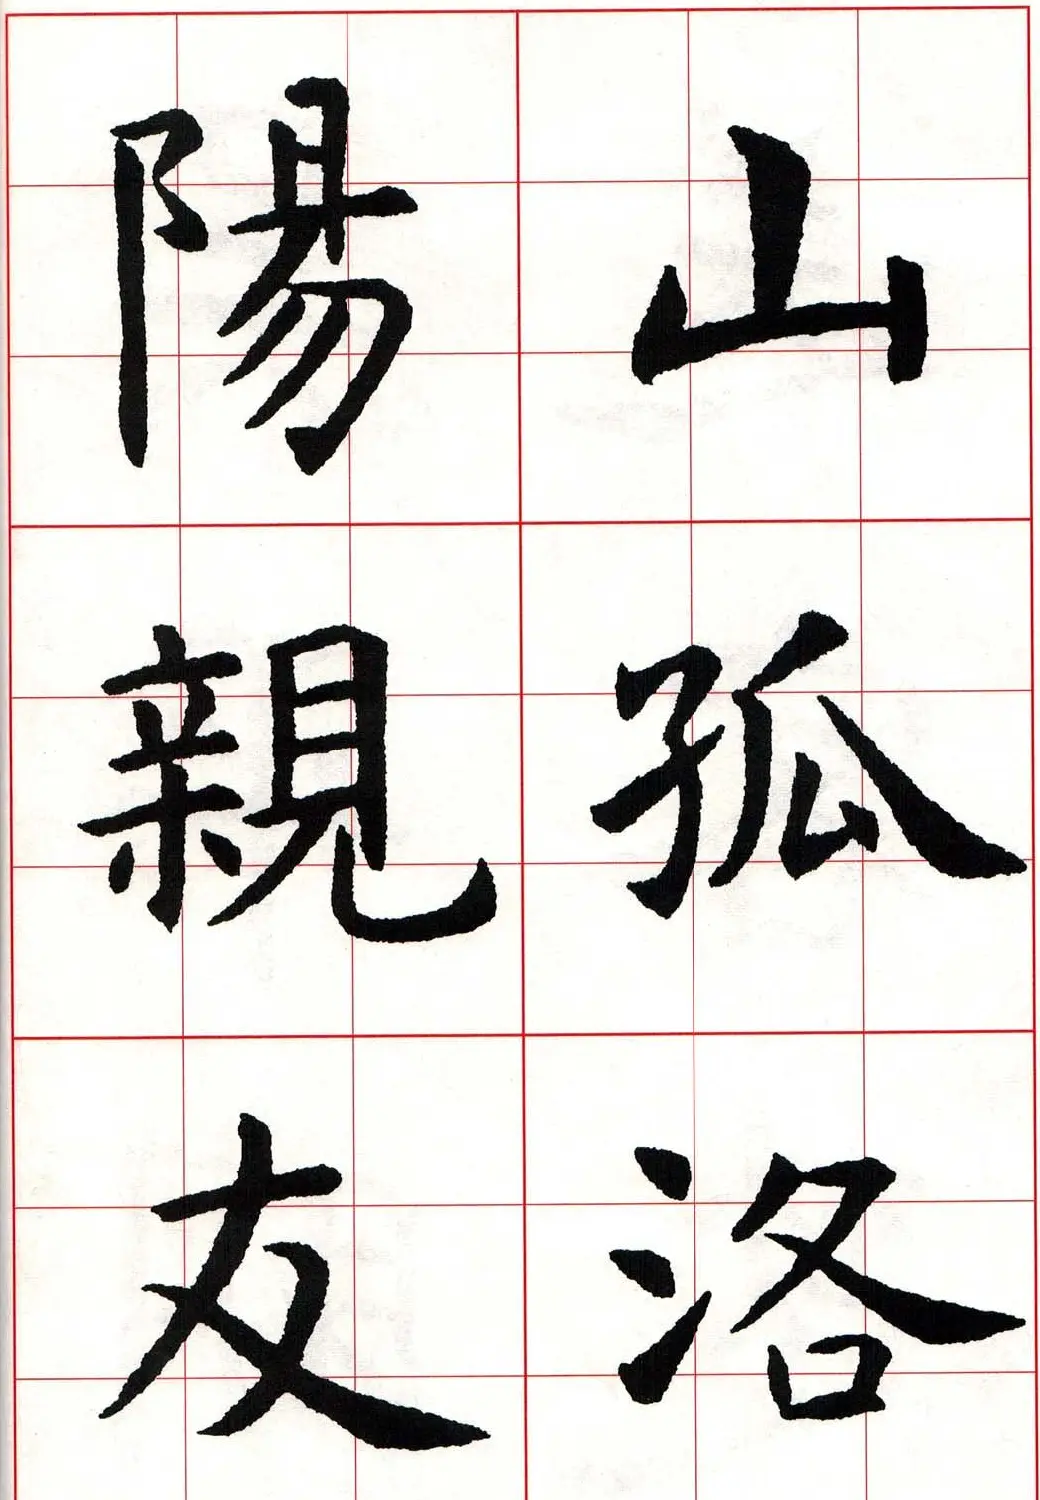 山孤洛
陽親友